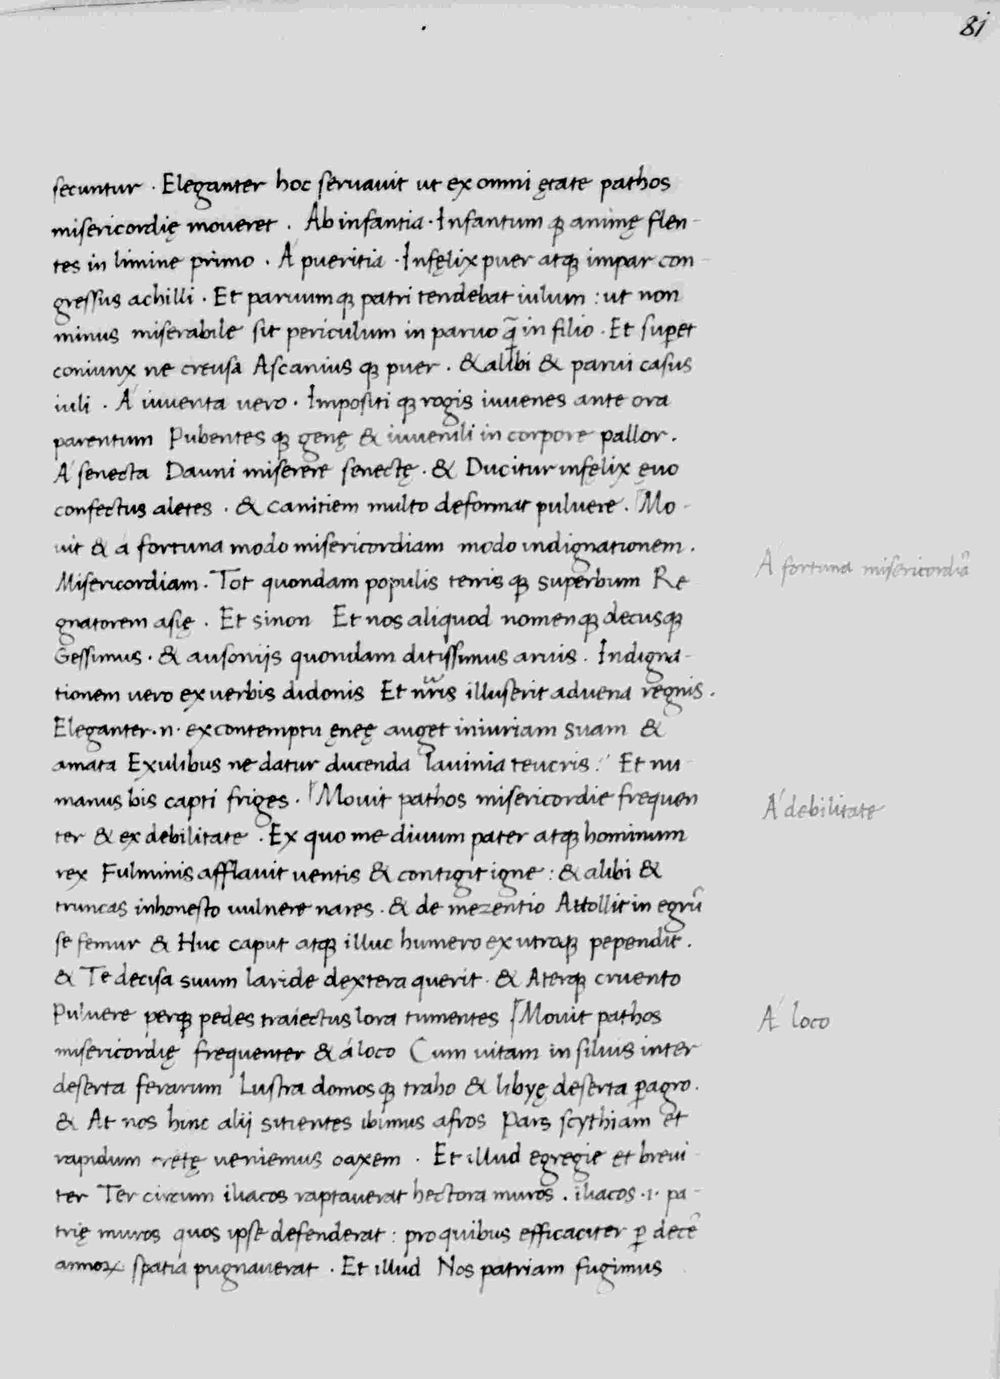 81
secuntur . Eleganter hoc seruauit ut ex omni ętate pathos
misericordię moueret . Ab infantia . Infantum q; animę flen-
tes in limine primo . Á pueritia . Infęlix puer atq; impar con-
gressus achilli . Et paruum q; patri tendebat iulum : ut non
minus miserabile sit periculum in paruo q̃ in filio . Et super
coniunx ne creusa Ascanius q; puer . & alibi & parui casus
iuli . Á iuuenta uero . Impositi q; rogis iuuenes ante ora
parentum Pubentes q; genę & iuuenili in corpore pallor .
Á senecta Dauni miserere senectę . & Ducitur infęlix ęuo
confectus aletes . & Canitiem multo deformat puluere . Mo-
uit & a fortuna modo misericordiam modo indignationem .
A fortuna misericordiã
Misericordiam . Tot quondam populis terris q; superbum Re
gnatorem asię . Et sinon Et nos aliquod nomen q; decusq;
Gessimus . & ausoniis quondam ditissimus aruis . Indigna-
tionem uero ex uerbis didonis Et nr̃is illuserit aduena regnis .
Eleganter .n. ex contemptu ęneę auget iniuriam suam &
amata Exulibus ne datur ducenda lauinia teucris . Et nu
manus bis capti friges . Mouit pathos misericordie frequen
Á debilitate
ter & ex debilitate . Ex quo me diuum pater atq; hominum
rex Fulminis afflauit uentis & contigit igne : & alibi &
truncas inhonesto uulnere nares . & de mezentio Attollit in egrũ
se femur & Huc caput atq; illuc humero ex utroq; pependit .
& Te decisa suum laride dextera querit . & Aterq; cruento
Puluere perq; pedes traiectus lora tumentes Mouit pathos
Á loco
misericordię frequenter & á loco Cum uitam in siluis inter
deserta ferarum Lustra domos q; traho & libyę deserta pagro .
& At nos hinc alij sitientes ibimus afros Pars scythiam et
rapidum cretę ueniemus oaxem . Et illud egregie et breui
ter Ter circum iliacos raptauerat hectora muros . iliacos .i. pa-
trię muros quos ipse defenderat : pro quibus efficaciter p decẽ
annoꝝ spatia pugnauerat . Et illud Nos patriam fugimus